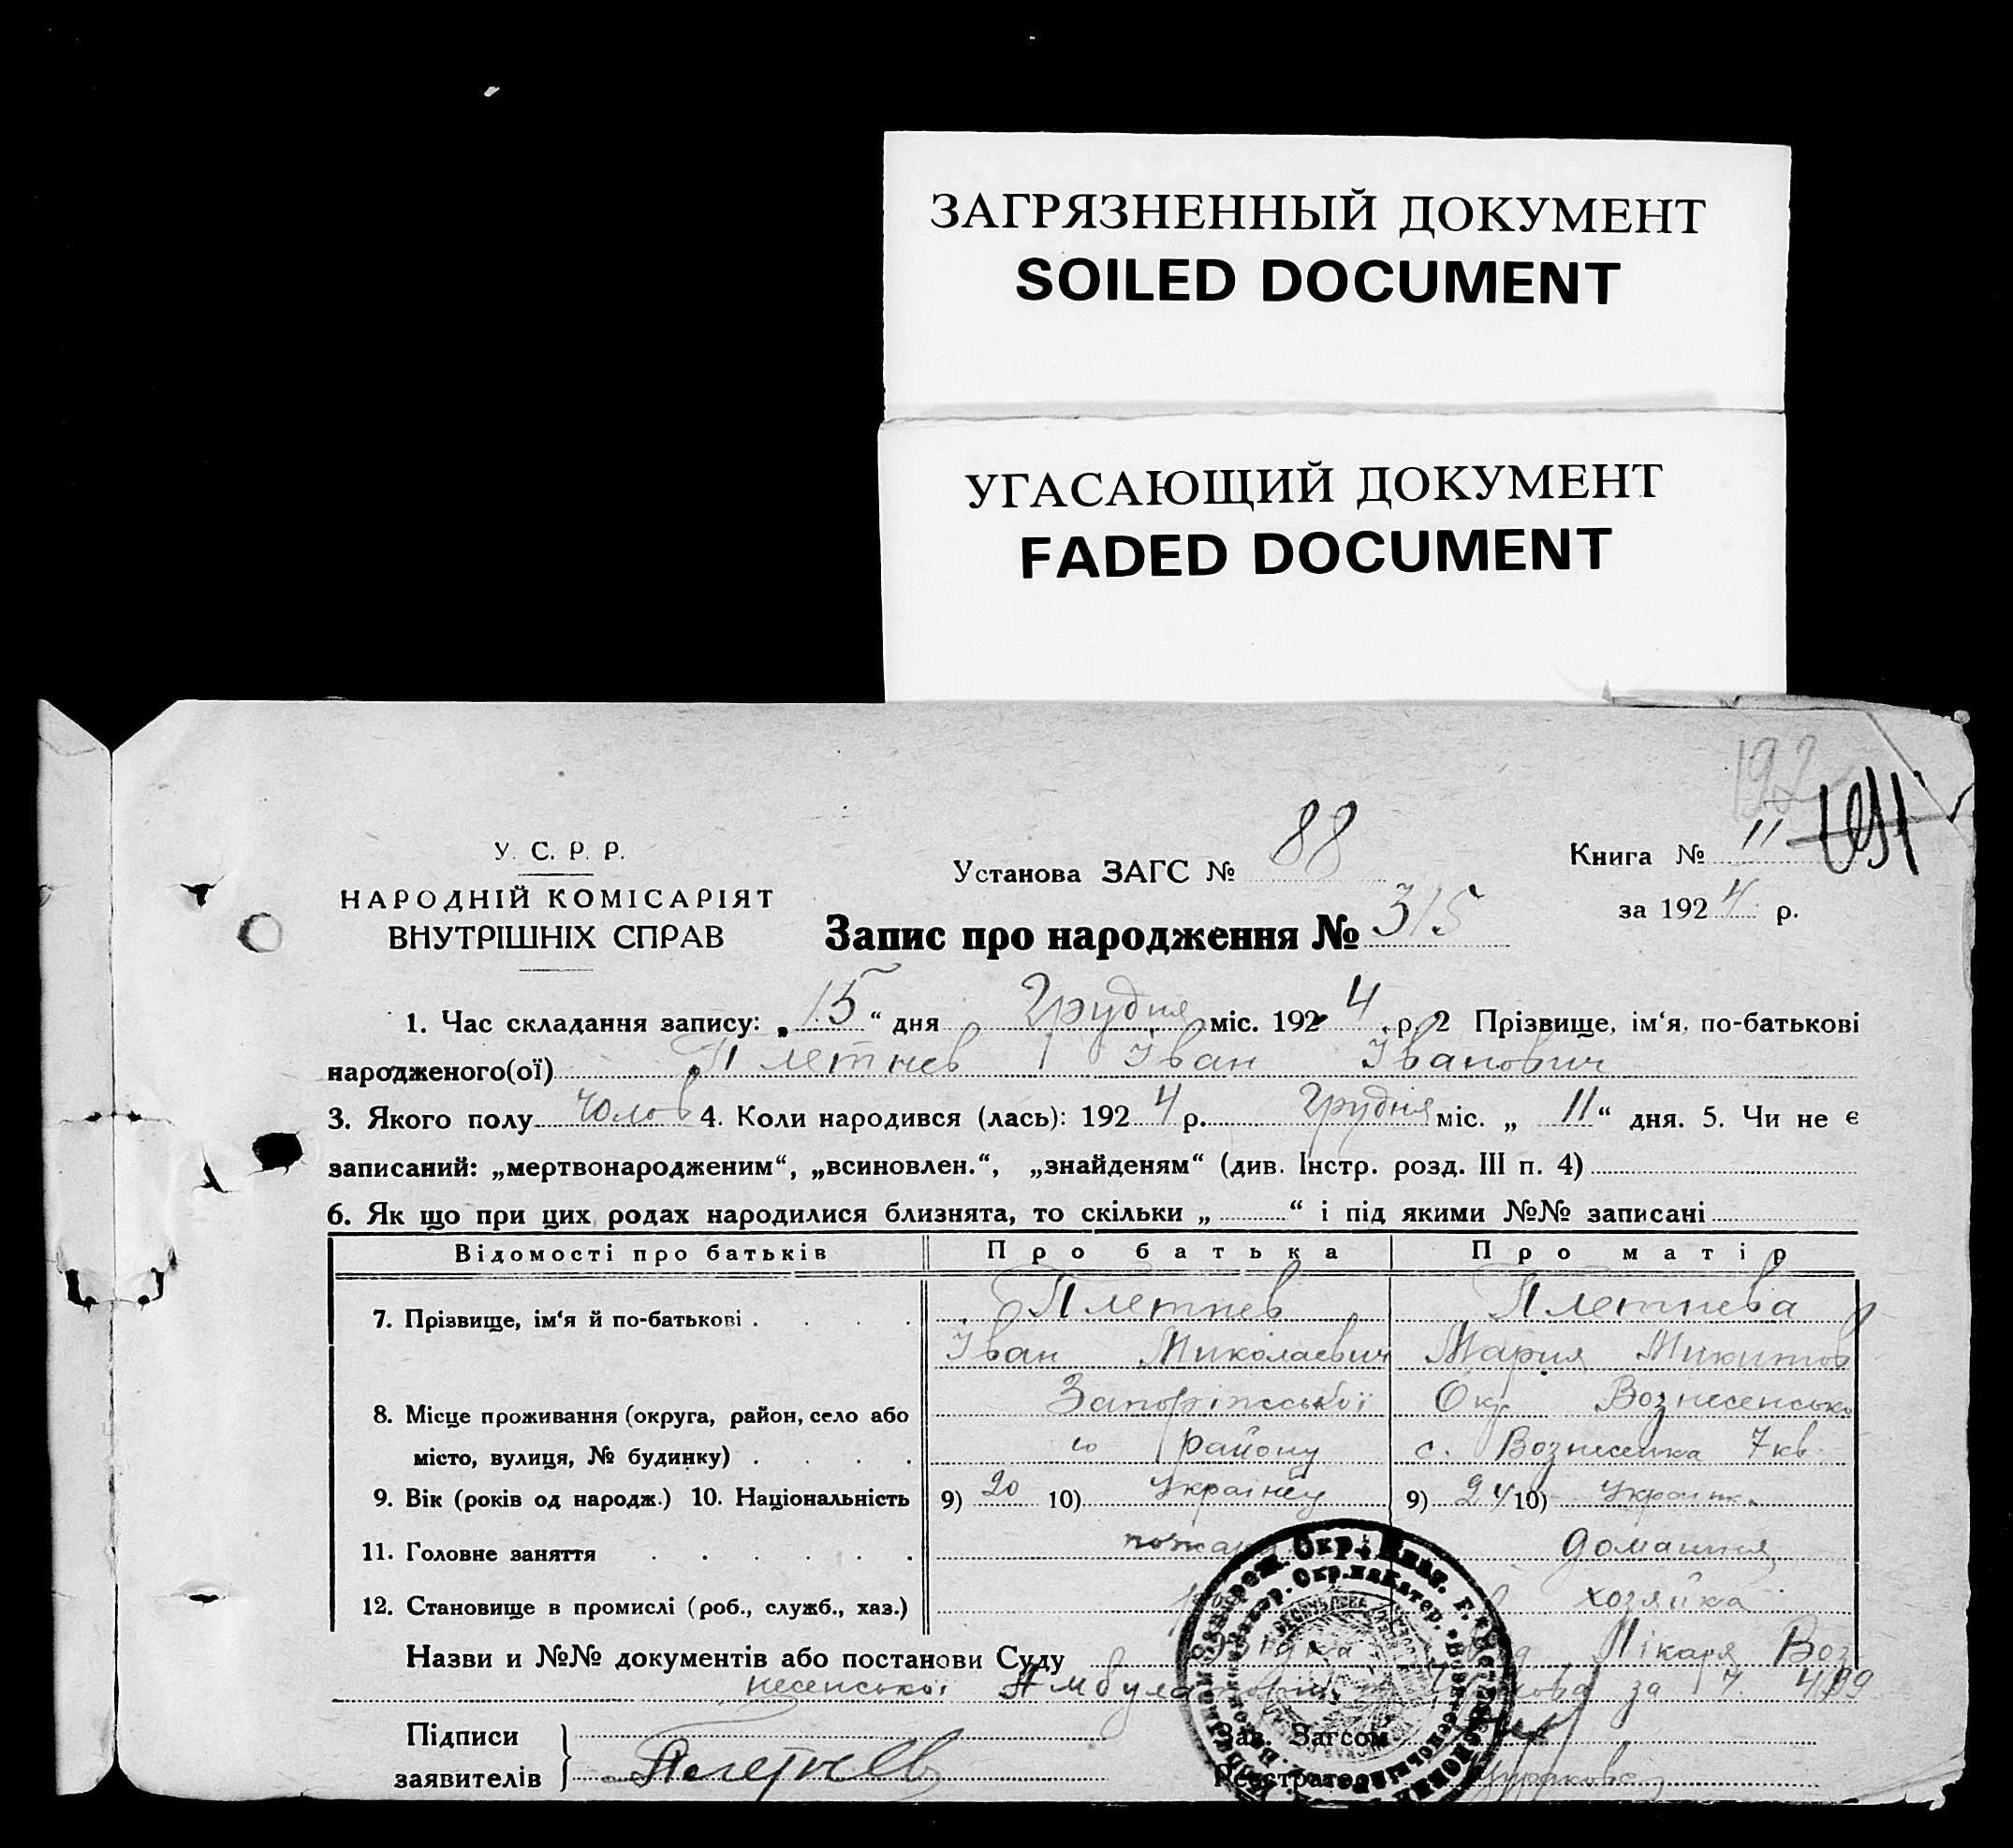 ЗАГРЯЗНЕННЫЙ ДОКУМЕНТ
SOILED DOCUMENT
УГАСАЮЩИЙ ДОКУМЕНТ
FADED DOCUMENT
192
У. С. Р. Р.
НАРОДНІЙ КОМІСАРІЯТ
ВНУТРІШНІХ СПРАВ
Установа ЗАГС № 88
Книга № 11
за 1924 р.
Запис про народження № 315
1. Час складання запису: „15“ дня Грудня міс. 1924 р. 2 Прізвище, ім‘я, по-батькові
народженого(ої) Плетнев Іван Іванович
3. Якого полу чолов 4. Коли народився (лась): 1924 р. Грудня міс. „11“ дня. 5. Чи не є
записаний: „мертвонародженим“, „всиновлен.“, „знайденям“ (див. Інстр. розд. III п. 4)
6. Як що при цих родах народилися близнята, то скільки „ “ і під якими №№ записані
Відомості про батьків Про батька Про матір
7. Прізвище, ім‘я й по-батькові . . . . Плетнев Плетнева
Іван Миколаевич Мария Микитов
8. Місце проживання (округа, район, село або Запоріжської Окр Вознесенсько
місто, вулиця, № будинку) . . . . го району с. Вознесенка 7 кв.
9. Вік (років од народж.) 10. Національність 9) 20 10) Українец 9) 24 10) Украінк.
11. Головне заняття . . . . . . домашня
12. Становище в промислі (роб., служб., хаз.) хозяйка
Назви и №№ документів або постанови Суду Лікаря Воз
несенської Амбулаторії за 4199
Підписи
заявителів
Плетнев
Зав. Загсом
Реєстратор